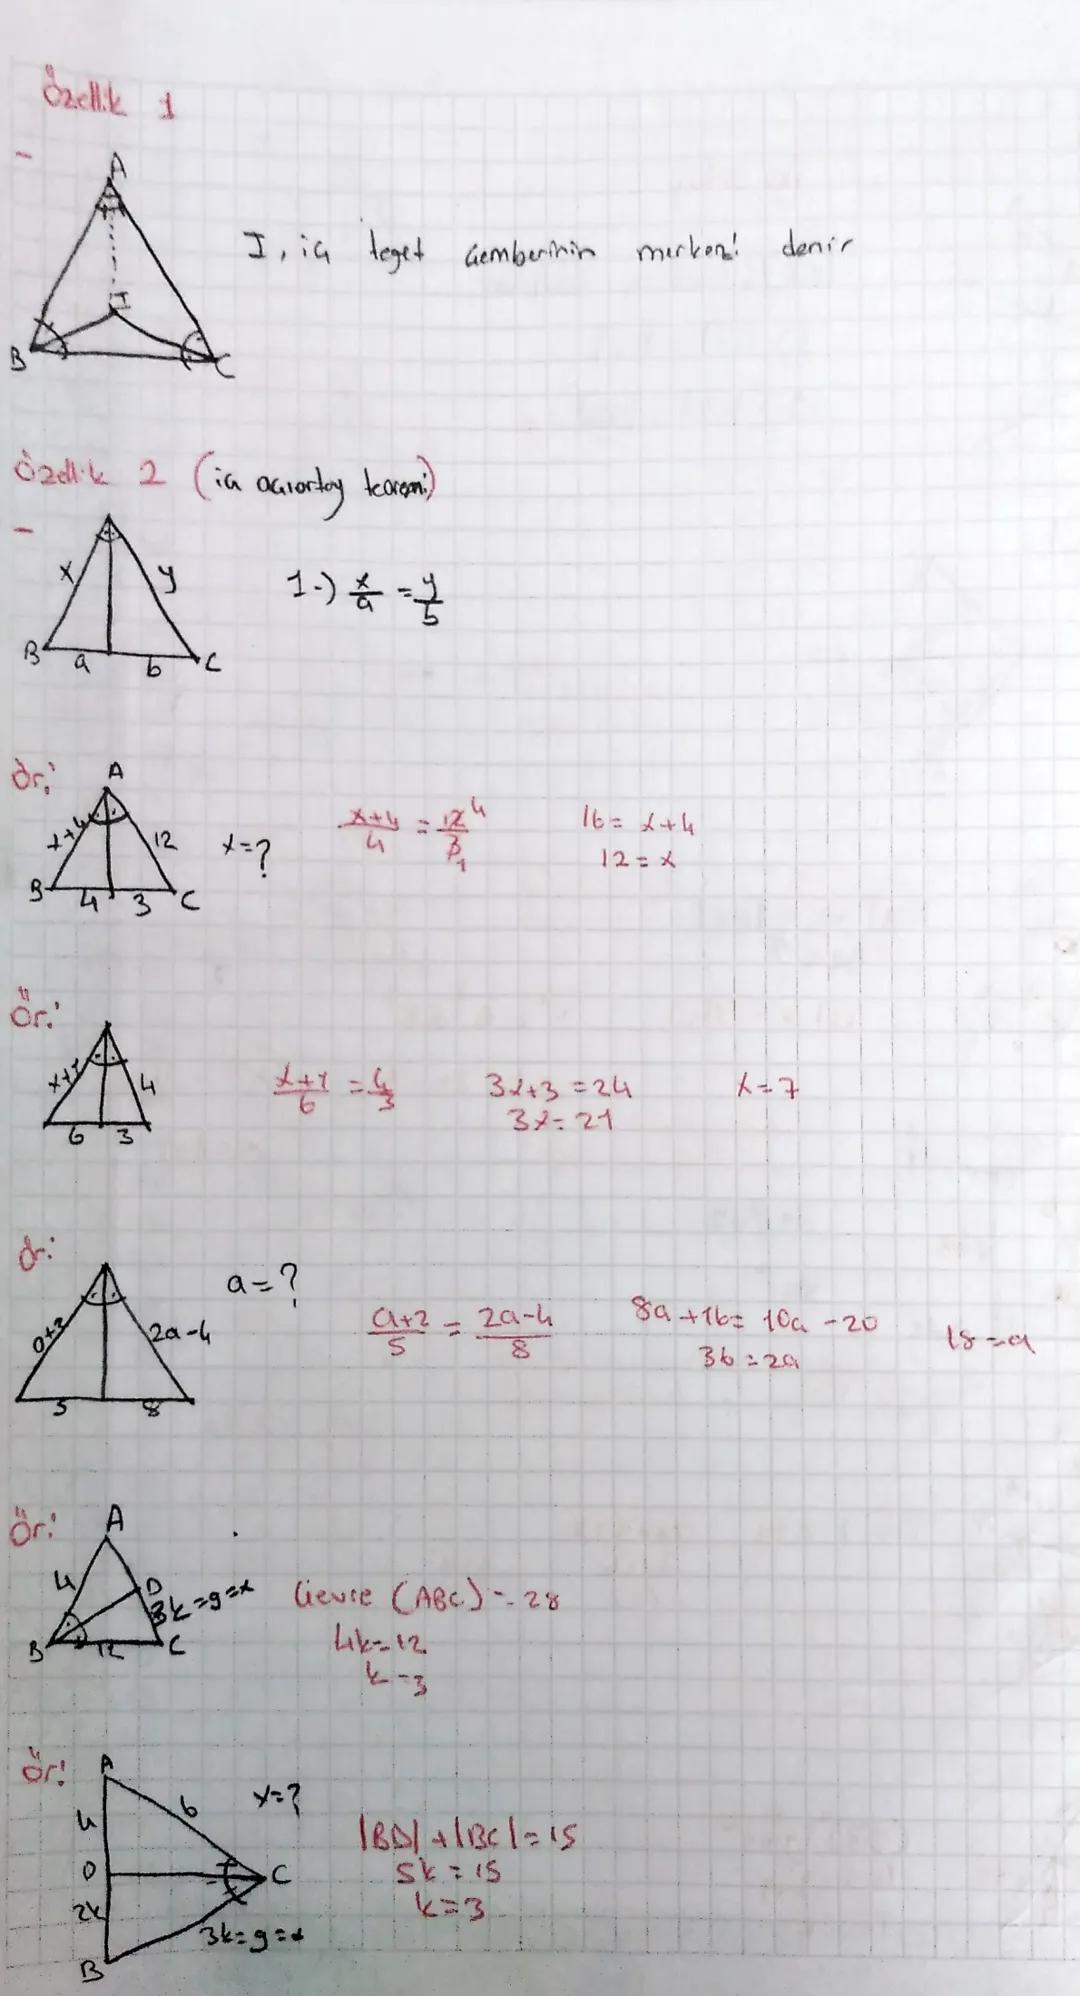 Özellik 1
-
A
I, iç teğet çemberinin merkezi denir
I
B
C
Özellik 2 (iç açıortay teoremi)
-
x
y
1-) x/a = y/b
B
a
b
C
Ör:
A
x+4
12
x=?
x+4/4 = 12/3 4 1
16 = x+4
12 = x
B
4
3
C
Ör:
x+1
4
x+1/6 = 4/3
3x+3 = 24
3x = 21
x = 7
6
3
Ör:
a=?
a+2
2a-4
a+2/5 = 2a-4/8
8a+16 = 10a-20
36 = 2a
18 = a
5
8
Ör:
A
4
D
3k=9=x
Çevre (ABC) = 28
4k=12
k=3
B
12
C
Ör:
A
4
6
x=?
|BD|+|BC|=15
D
C
5k=15
k=3
2k
3k=9=x
B